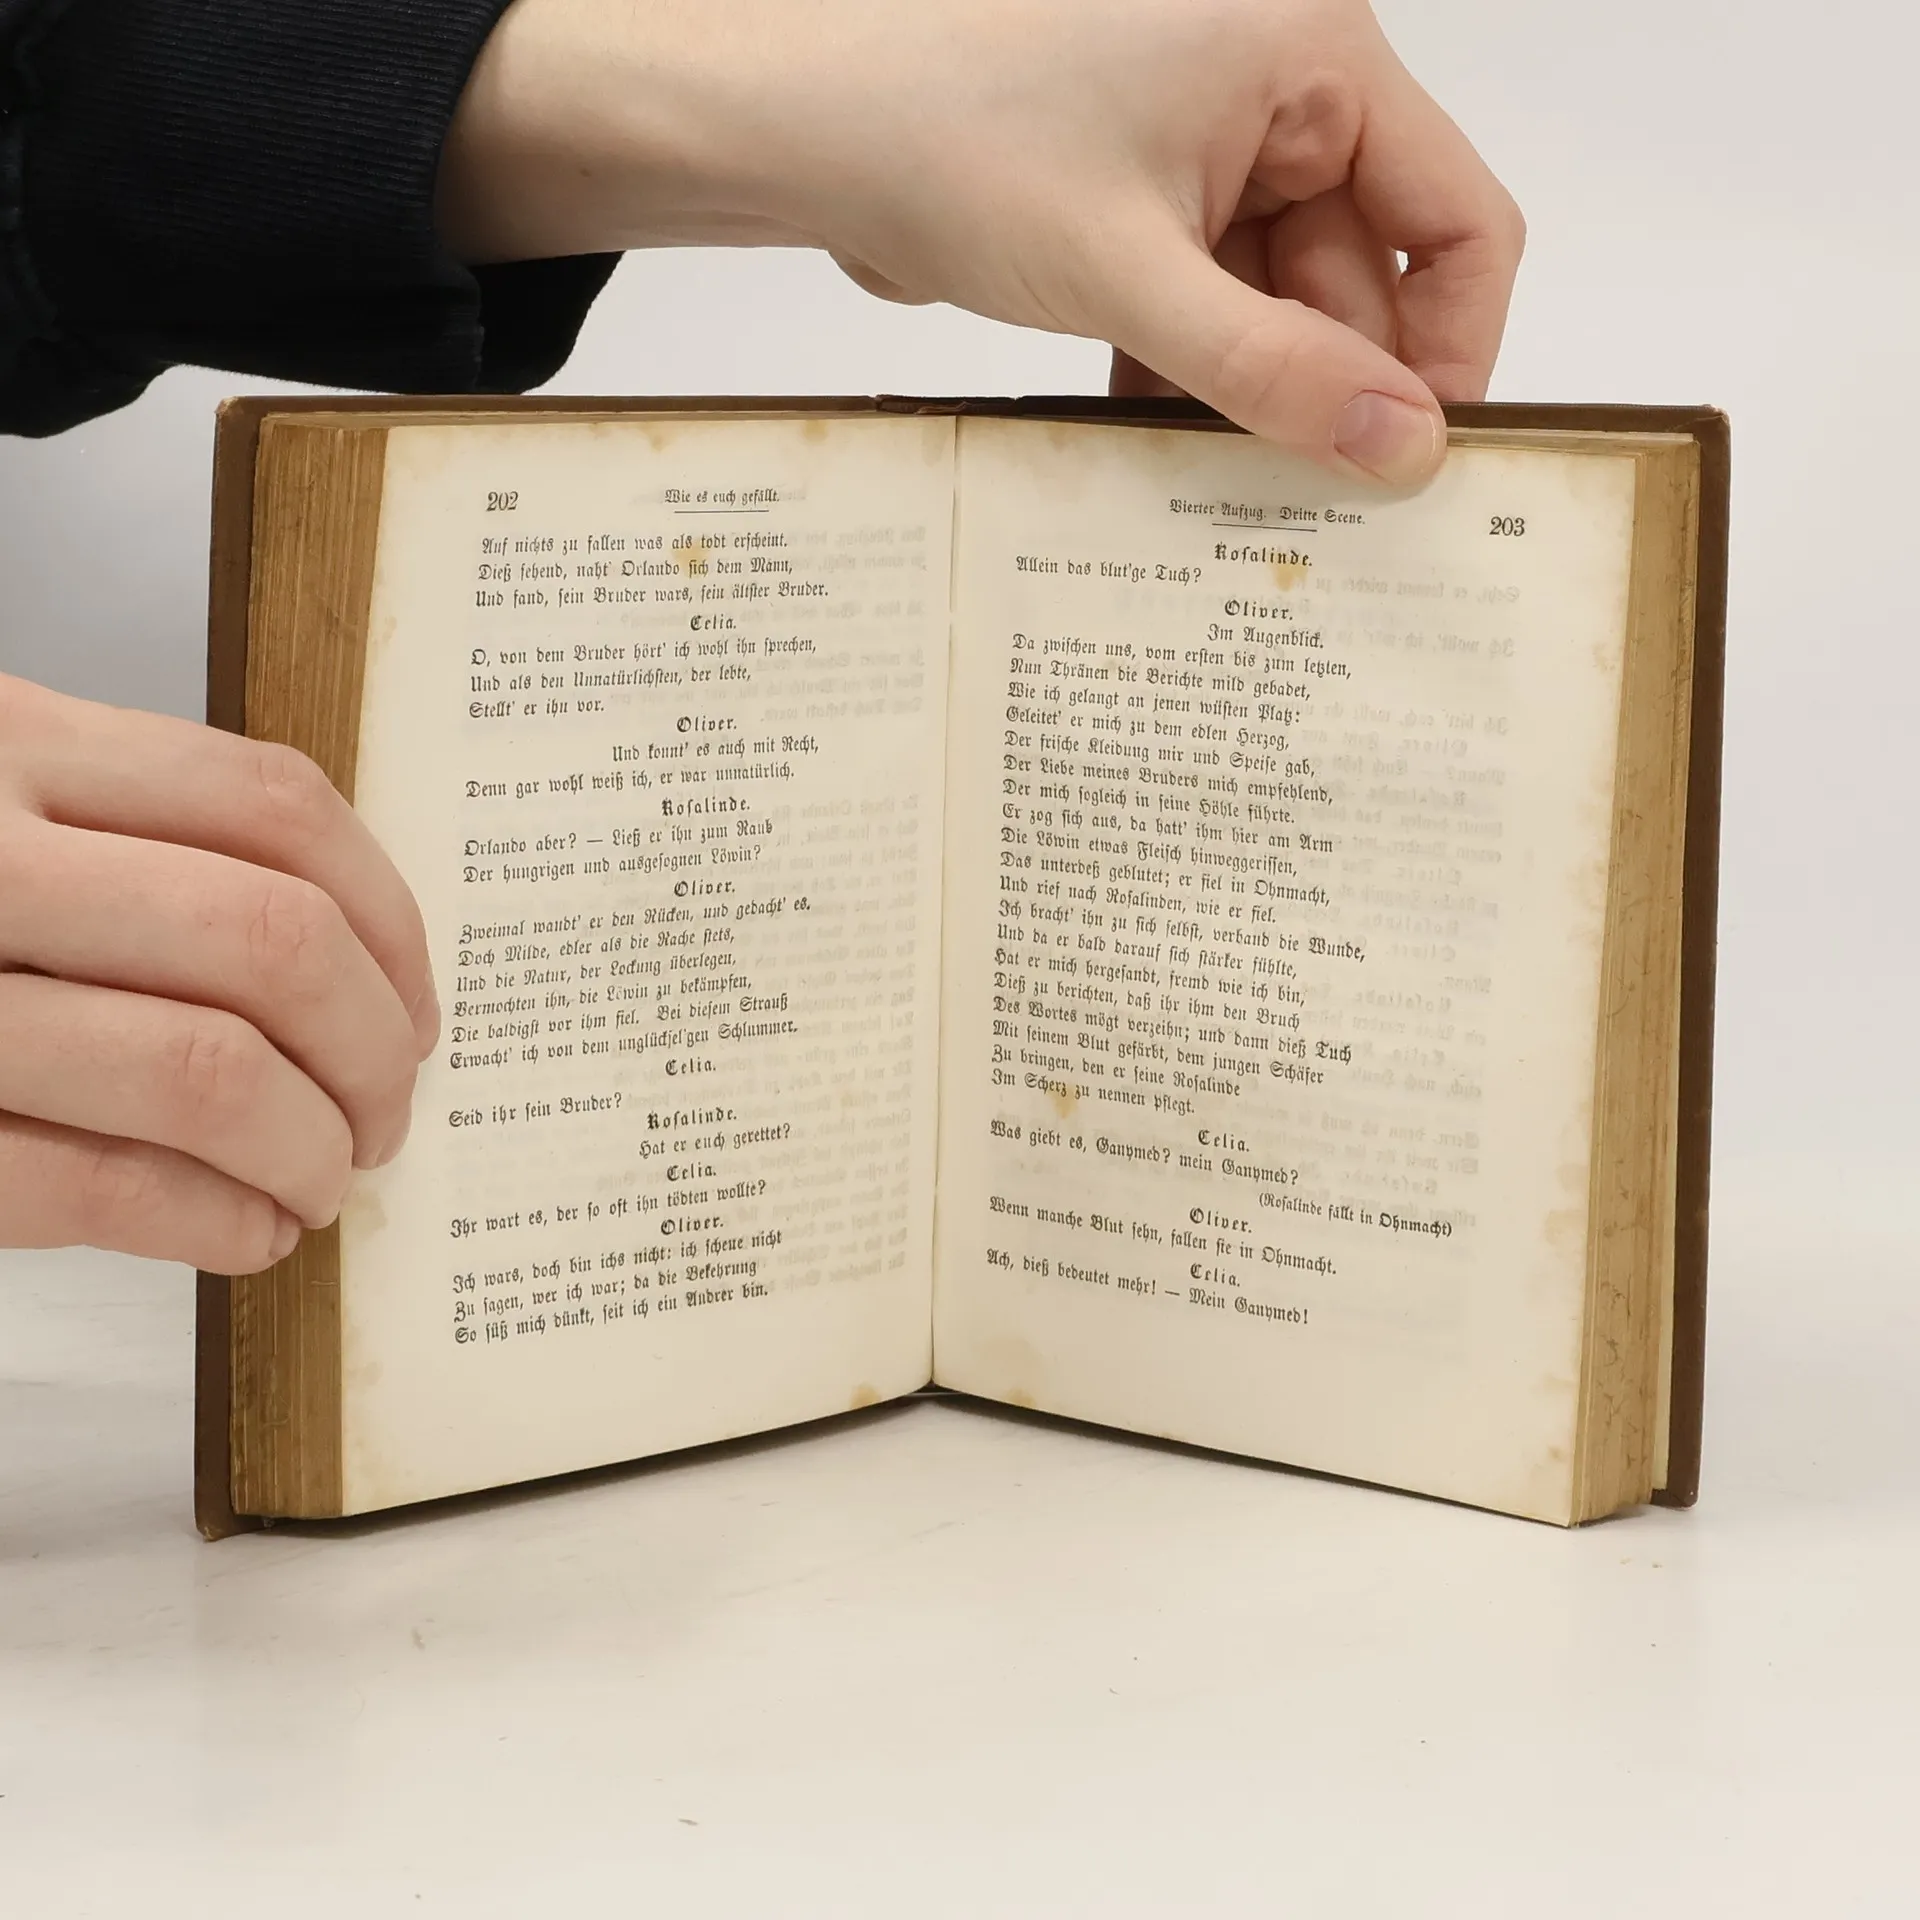 202
Wie es euch gefällt.
Auf nichts zu fallen was als todt erscheint.
Dieß sehend, naht' Orlando sich dem Mann,
Und fand, sein Bruder wars, sein ältster Bruder.
Celia.
O, von dem Bruder hört' ich wohl ihn sprechen,
Und als den Unnatürlichsten, der lebte,
Stellt' er ihn vor.
Oliver.
Und konnt' es auch mit Recht,
Denn gar wohl weiß ich, er war unnatürlich.
Rosalinde.
Orlando aber? — Ließ er ihn zum Raub
Der hungrigen und ausgesognen Löwin?
Oliver.
Zweimal wandt' er den Rücken, und gedacht' es.
Doch Milde, edler als die Rache stets,
Und die Natur, der Lockung überlegen,
Vermochten ihn, die Löwin zu bekämpfen,
Die baldigst vor ihm fiel. Bei diesem Strauß
Erwacht' ich von dem unglücksel'gen Schlummer.
Celia.
Seid ihr sein Bruder?
Rosalinde.
Hat er euch gerettet?
Celia.
Ihr wart es, der so oft ihn tödten wollte?
Oliver.
Ich wars, doch bin ichs nicht: ich scheue nicht
Zu sagen, wer ich war; da die Bekehrung
So süß mich dünkt, seit ich ein Andrer bin.
Vierter Aufzug. Dritte Scene.
203
Rosalinde.
Allein das blut'ge Tuch?
Oliver.
Im Augenblick.
Da zwischen uns, vom ersten bis zum letzten,
Nun Thränen die Berichte mild gebadet,
Wie ich gelangt an jenen wüsten Platz:
Geleitet' er mich zu dem edlen Herzog,
Der frische Kleidung mir und Speise gab,
Der Liebe meines Bruders mich empfehlend,
Der mich sogleich in seine Höhle führte.
Er zog sich aus, da hatt' ihm hier am Arm
Die Löwin etwas Fleisch hinweggerissen,
Das unterdeß geblutet; er fiel in Ohnmacht,
Und rief nach Rosalinden, wie er fiel.
Ich bracht' ihn zu sich selbst, verband die Wunde,
Und da er bald darauf sich stärker fühlte,
Hat er mich hergesandt, fremd wie ich bin,
Dieß zu berichten, daß ihr ihm den Bruch
Des Wortes mögt verzeihn; und dann dieß Tuch
Mit seinem Blut gefärbt, dem jungen Schäfer
Zu bringen, den er seine Rosalinde
Im Scherz zu nennen pflegt.
Celia.
Was giebt es, Ganymed? mein Ganymed?
(Rosalinde fällt in Ohnmacht)
Oliver.
Wenn manche Blut sehn, fallen sie in Ohnmacht.
Celia.
Ach, dieß bedeutet mehr! — Mein Ganymed!